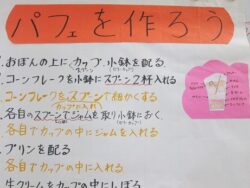 パフェを作ろう
1. おぼんの上に、カップ、小鉢を配る。
コーンフレークを小鉢にスプーン2杯入れる
コーンフレークをスプーンで細かくする
カップの中に入れる
各自のスプーンでジャムを取り小鉢におく。
各自でカップの中にジャムを入れる
プリンを配る
各自でカップの中に入れる
生クリームをカップの中にしぼる